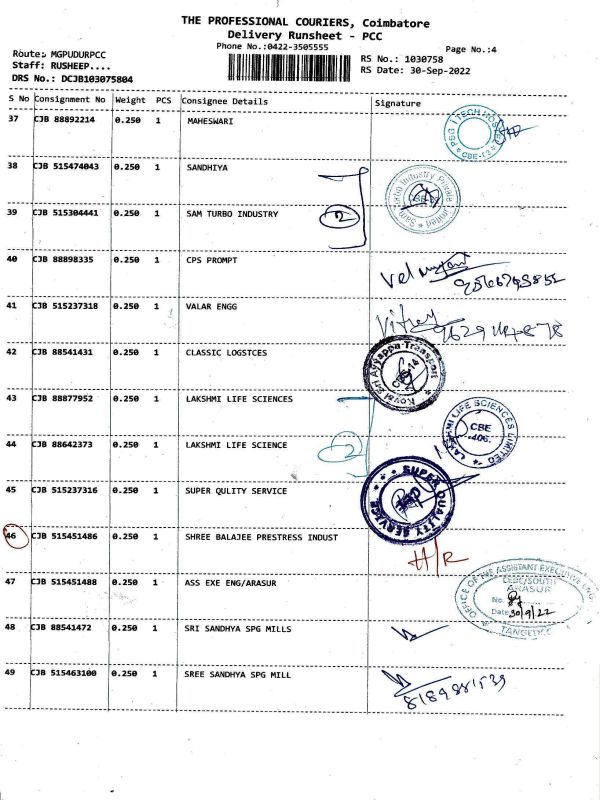 THE PROFESSIONAL COURIERS, Coimbatore
Delivery Runsheet - PCC
Phone No.:0422-3505555
Page No.:4
Route: MGPUDURPCC
Staff: RUSHEEP....
DRS No.: DCJB103075804
RS No.: 1030758
RS Date: 30-Sep-2022
S No Consignment No Weight PCS Consignee Details Signature
37 CJB 88892214 0.250 1 MAHESWARI
38 CJB 515474043 0.250 1 SANDHIYA
39 CJB 515304441 0.250 1 SAM TURBO INDUSTRY
2
Sam Turbo Industry Private Limited
40 CJB 88898335 0.250 1 CPS PROMPT
41 CJB 515237318 0.250 1 VALAR ENGG
42 CJB 88541431 0.250 1 CLASSIC LOGSTCES
Sri Ayyappa Transport
43 CJB 88877952 0.250 1 LAKSHMI LIFE SCIENCES
44 CJB 88642373 0.250 1 LAKSHMI LIFE SCIENCE
2
LAKSHMI LIFE SCIENCES LIMITED
CBE
406.
45 CJB 515237316 0.250 1 SUPER QULITY SERVICE
SUPER QUALITY SERVICE
46 CJB 515451486 0.250 1 SHREE BALAJEE PRESTRESS INDUST
H/R
47 CJB 515451488 0.250 1 ASS EXE ENG/ARASUR
OFFICE OF THE ASSISTANT EXECUTIVE ENG.
ARASUR
No.
Date 30/9/22
TANGEDCO
48 CJB 88541472 0.250 1 SRI SANDHYA SPG MILLS
49 CJB 515463100 0.250 1 SREE SANDHYA SPG MILL